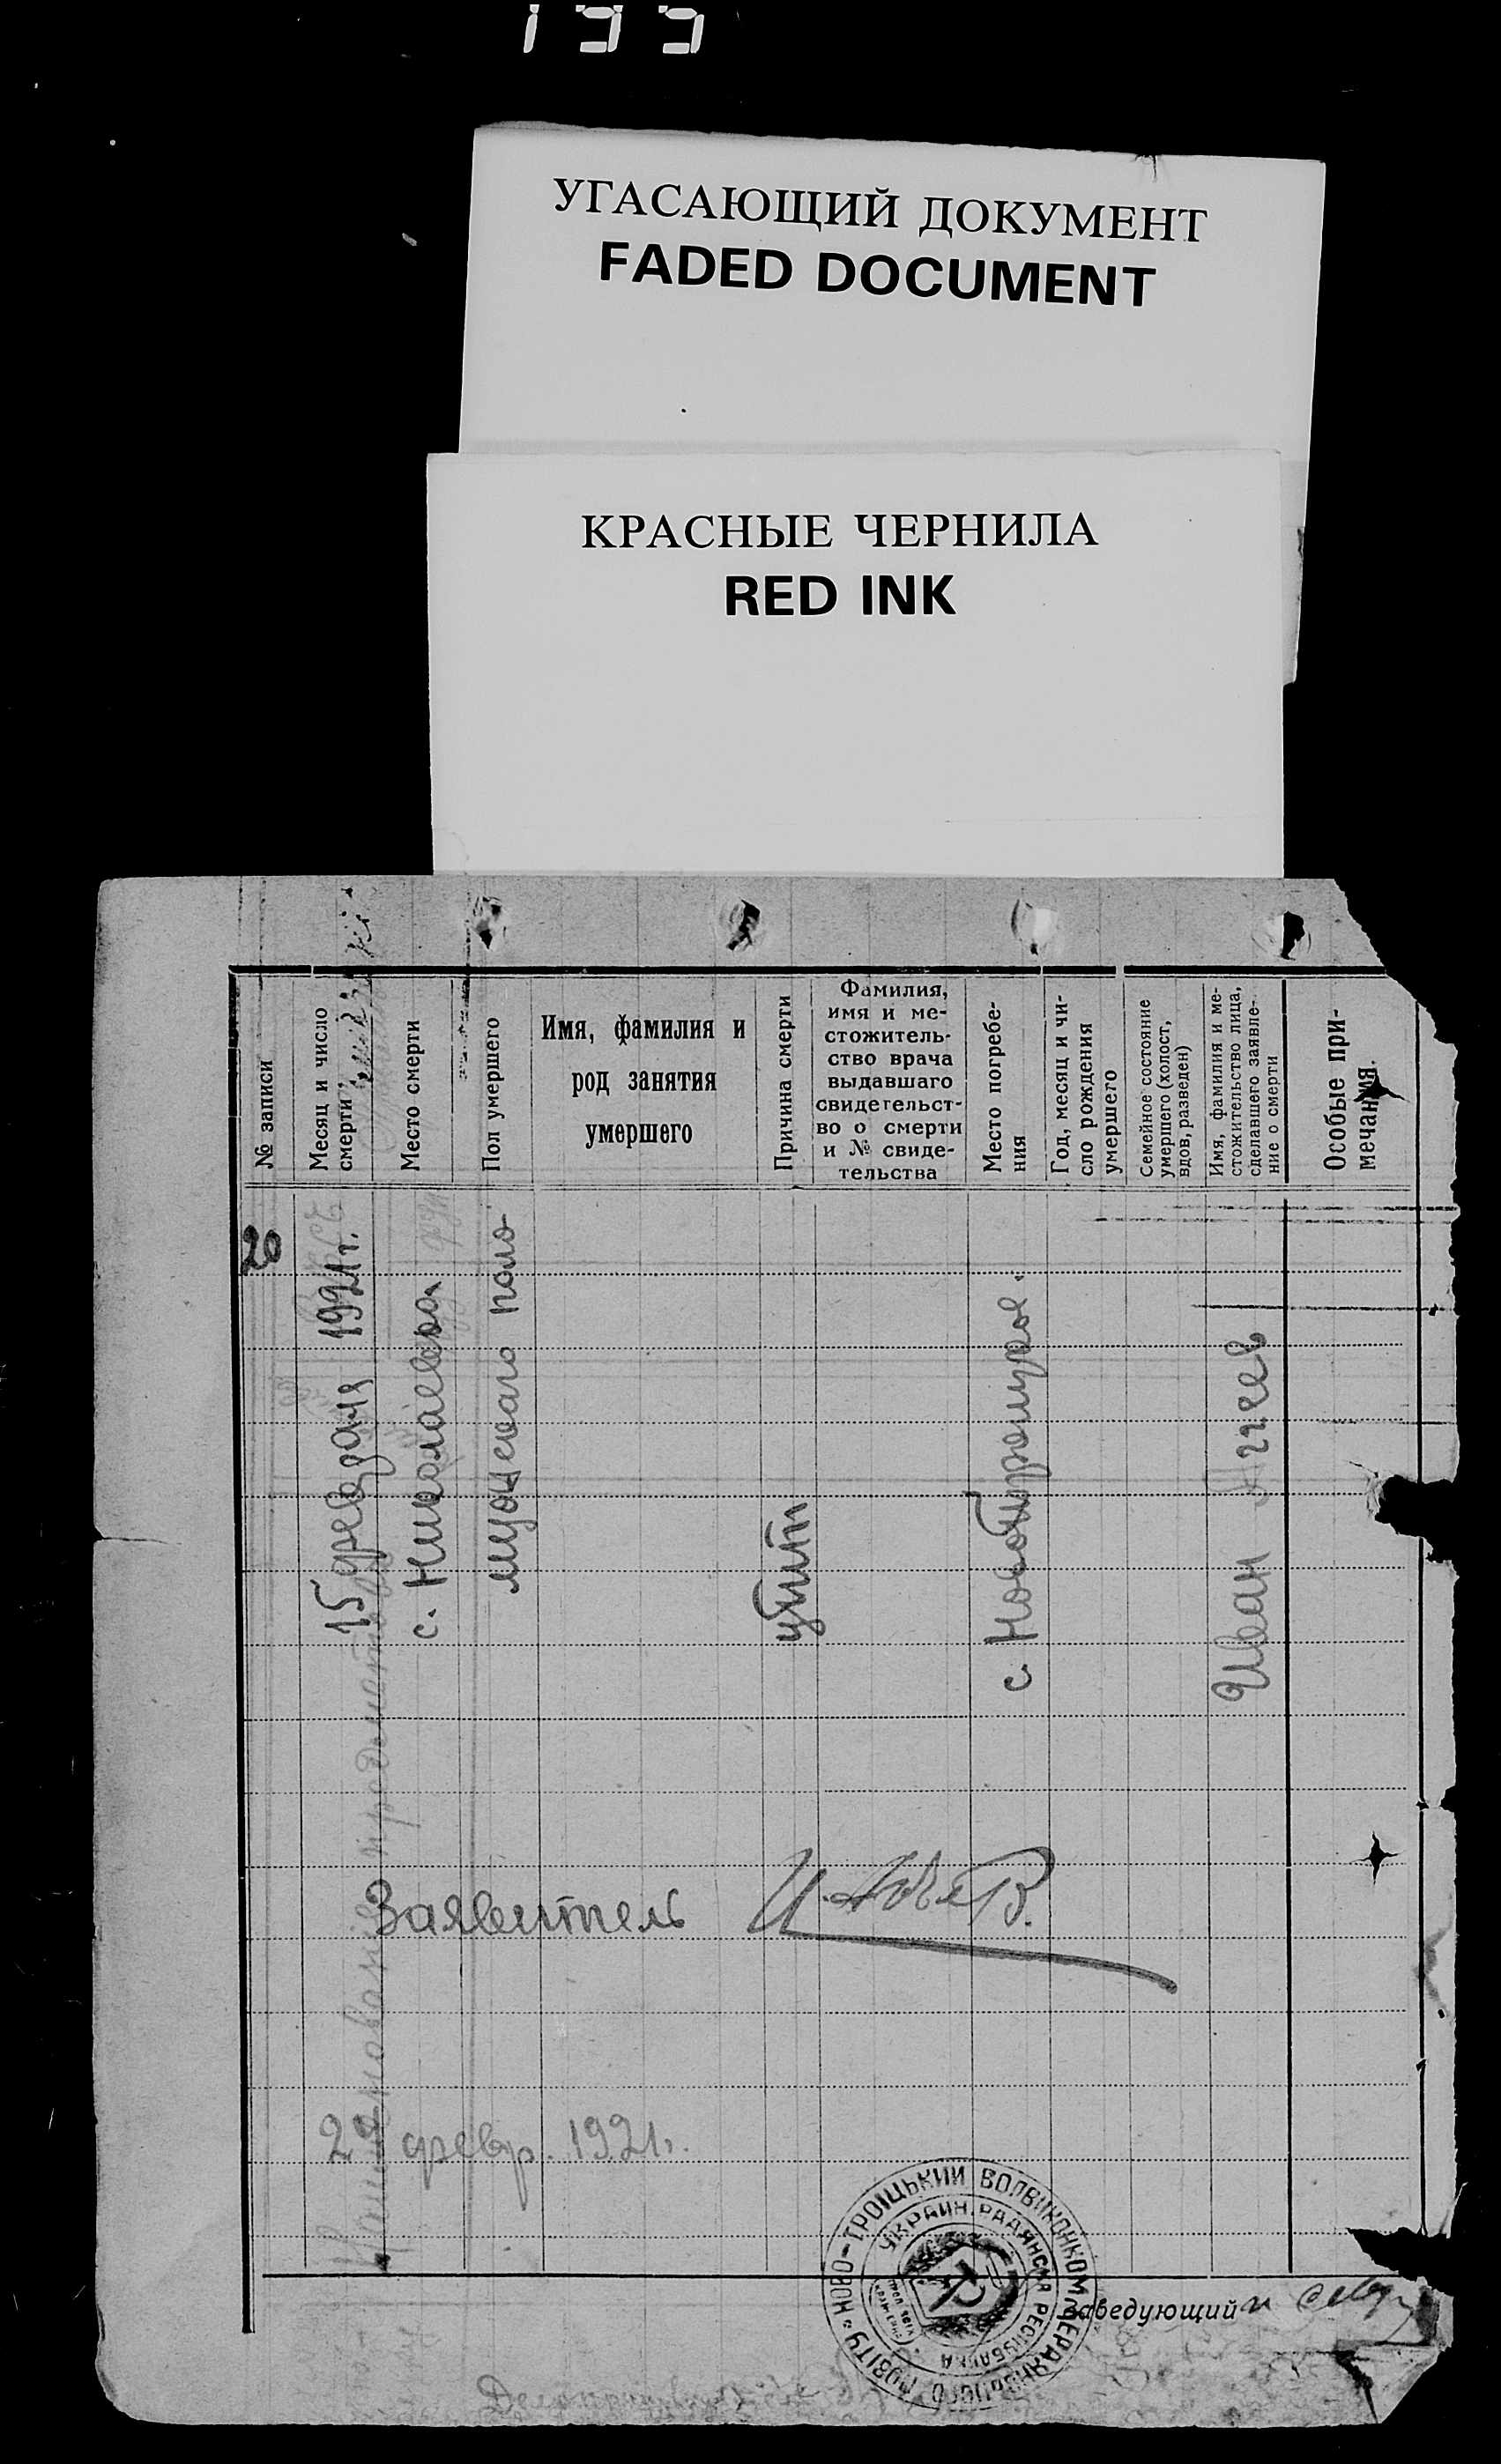 УГАСАЮЩИЙ ДОКУМЕНТ
FADED DOCUMENT
КРАСНЫЕ ЧЕРНИЛА
RED INK
№ записи
Месяц и число
смерти
Место смерти
Пол умершего
Имя, фамилия и
род занятия
умершего
Причина смерти
Фамилия,
имя и ме-
стожитель-
ство врача
выдавшаго
свидетельст-
во о смерти
и № свиде-
тельства
Место погребе-
ния
Год, месяц и чи-
сло рождения
умершего
Семейное состояние
умершего (холост,
вдов, разведен)
Имя, фамилия и ме-
стожительство лица,
сделавшего заявле-
ние о смерти
Особые при-
мечания.
20
15 февраля 1921 г.
с. Николаевка
мужскаго поло
убит
с. Новотроицкое.
Иван
Заявитель
22 февр. 1921 г.
НОВО-ТРОІЦЬКИЙ ВОЛВИКОНКОМ БЕРДЯНСЬКОГО ПОВІТУ
УКРАИН. РАДЯНСКА РЕСПУБЛІКА
Заведующий